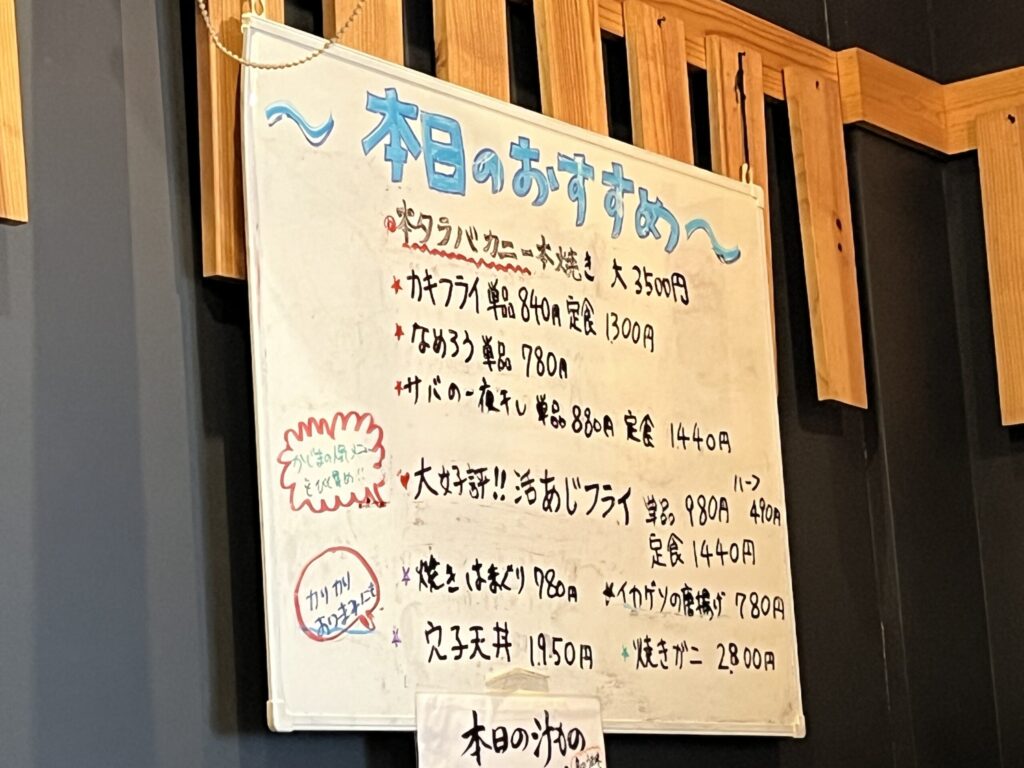 〜本日のおすすめ〜
本タラバカニ一本焼き 大 3500円
★カキフライ 単品 840円 定食 1300円
★なめろう 単品 780円
★サバの一夜干し 単品 880円 定食 1440円
♥大好評!! 活あじフライ 単品 980円 ハーフ 490円
定食 1440円
☆焼きはまぐり 780円
★イカゲソの唐揚げ 780円
☆穴子天丼 1950円
★焼きガニ 2800円
カリカリ
本日の汁もの